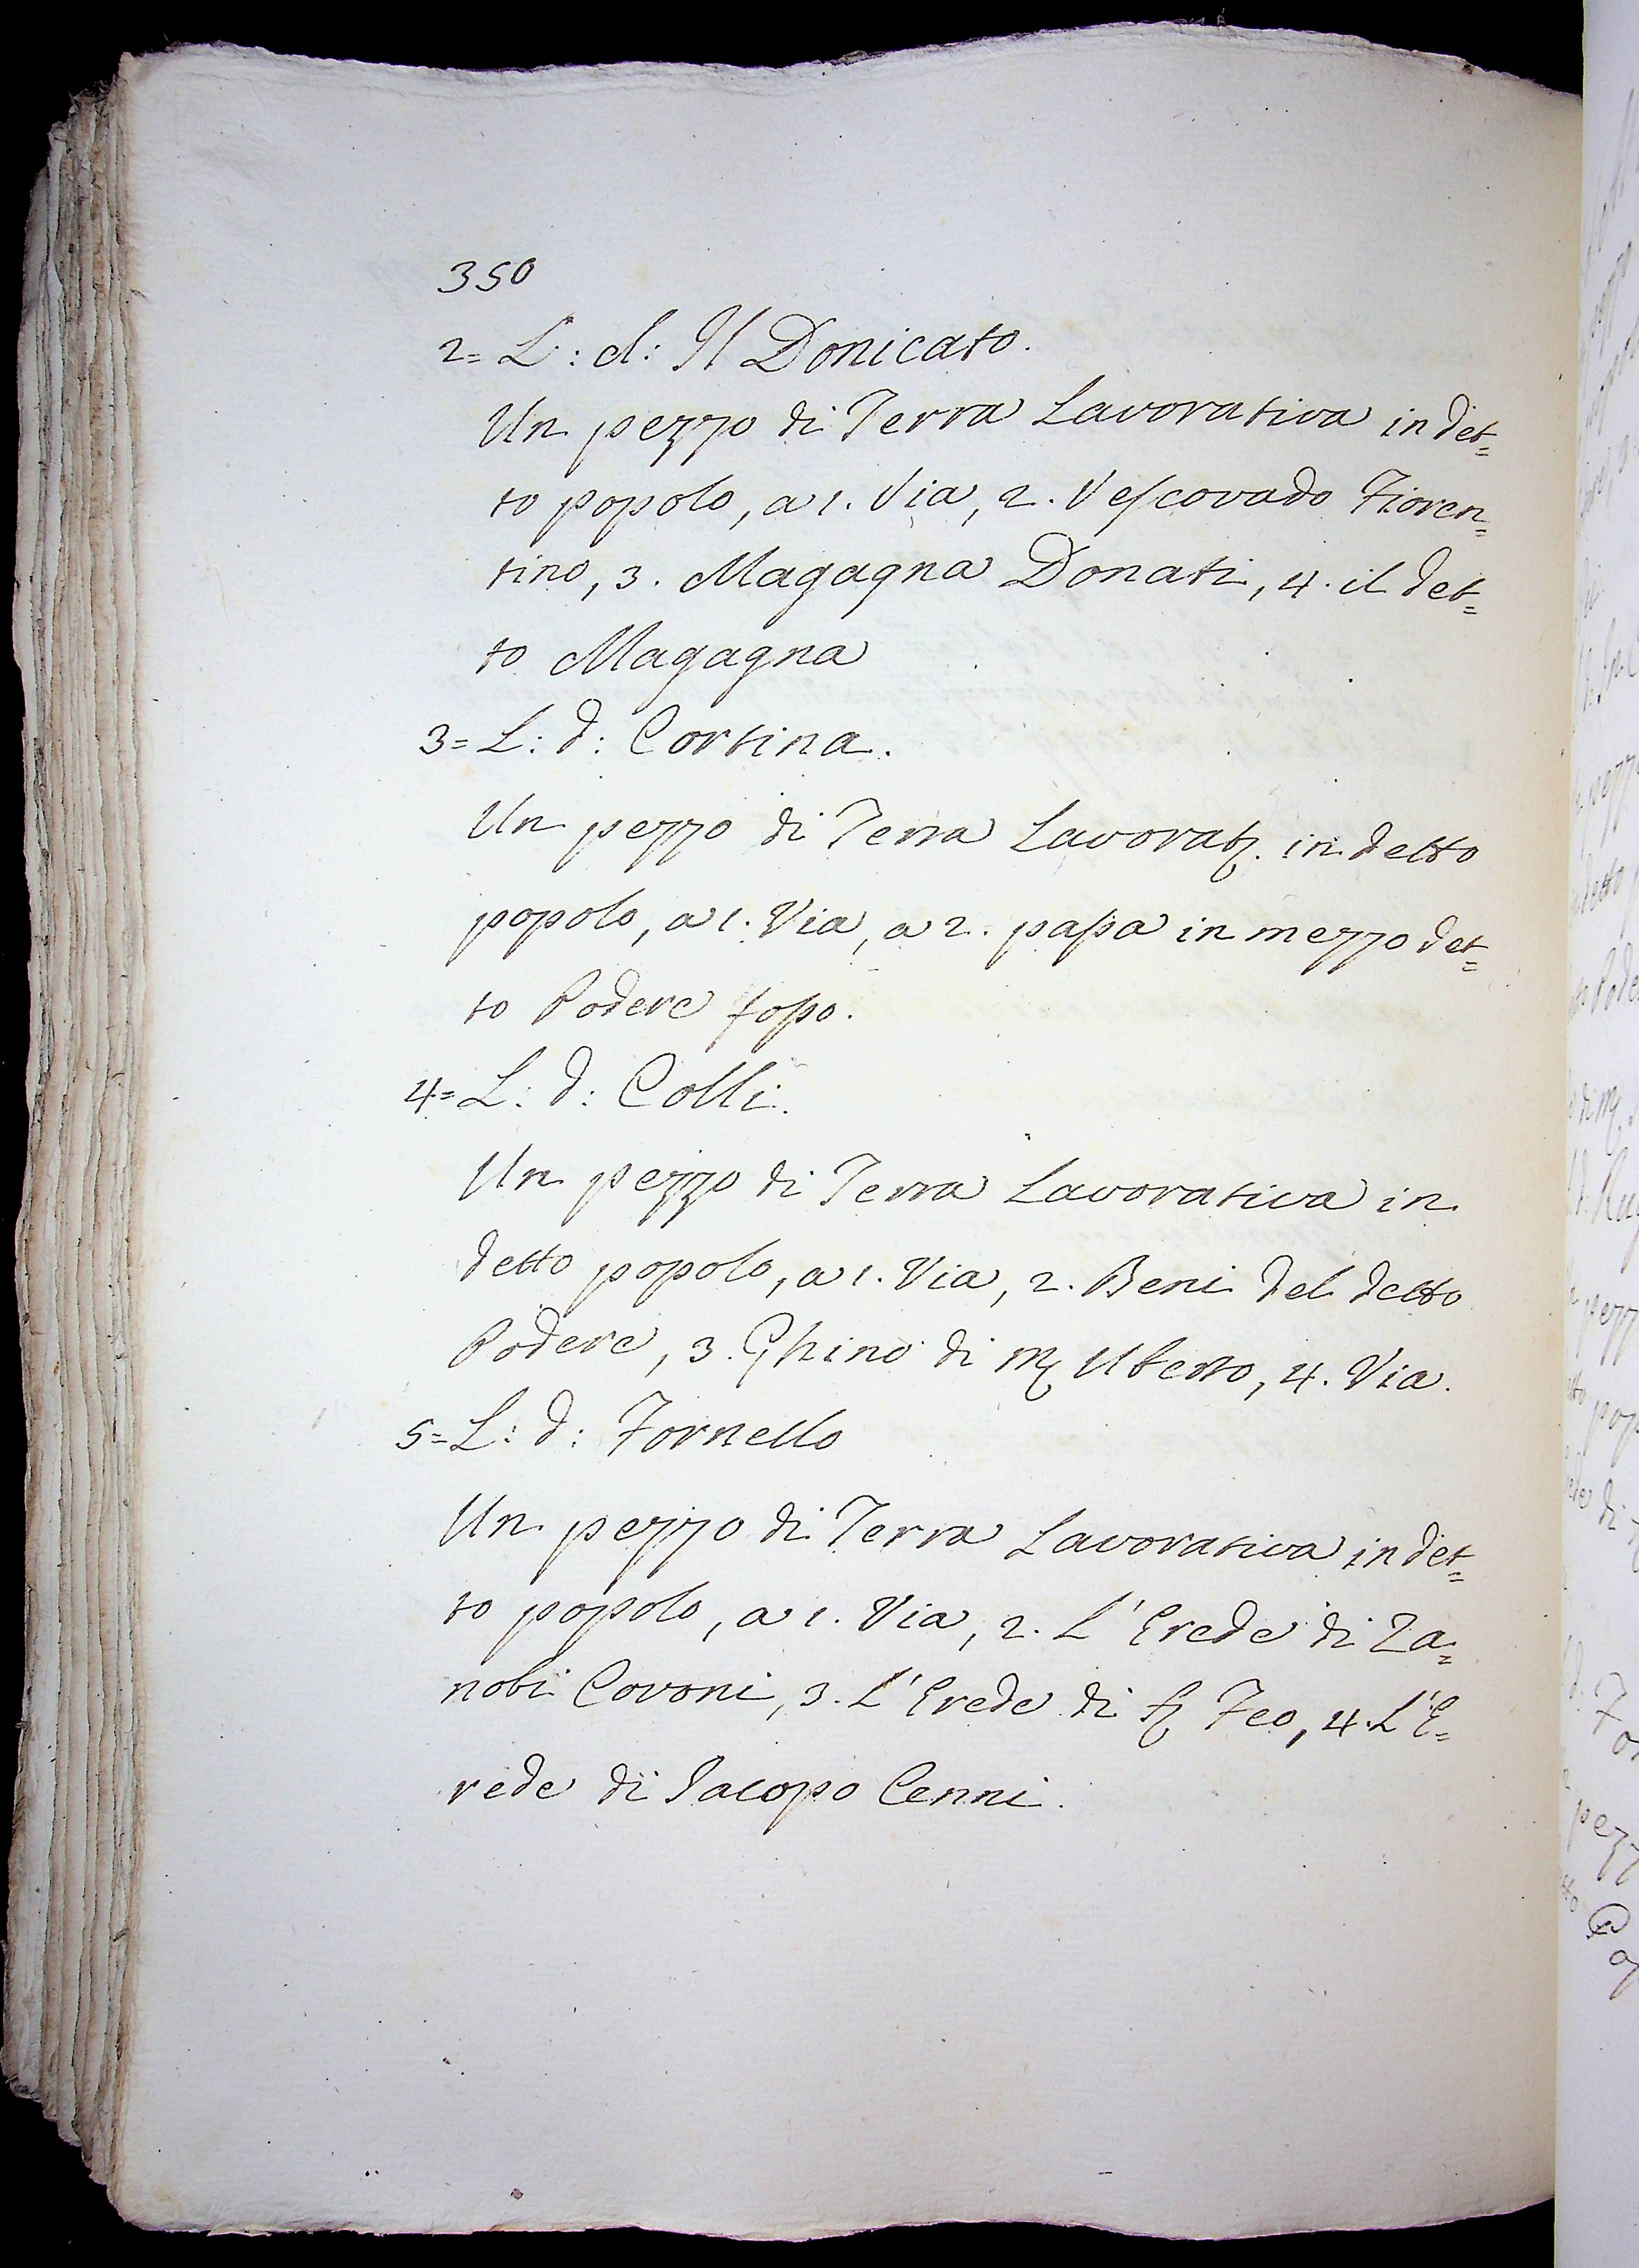 350
2= L: d: Il Donicato.
Un pezzo di Terra Lavorativa in det=
to popolo, a 1. Via, 2. Vescovado Fioren=
tino, 3. Magagna Donati, 4. il det=
to Magagna
3= L: d: Cortina.
Un pezzo di Terra Lavorat. in detto
popolo, a 1. Via, a 2. passa in mezzo det=
to Podere fosso.
4= L: d: Colli.
Un pezzo di Terra Lavorativa in
detto popolo, a 1. Via, 2. Beni del detto
Podere, 3. Ghino di M. Uberto, 4. Via.
5= L: d: Fornello
Un pezzo di Terra Lavorativa in det=
to popolo, a 1. Via, 2. L'Erede di Za=
nobi Covoni, 3. L'Erede di Feo, 4. L'E=
rede di Iacopo Cenni.